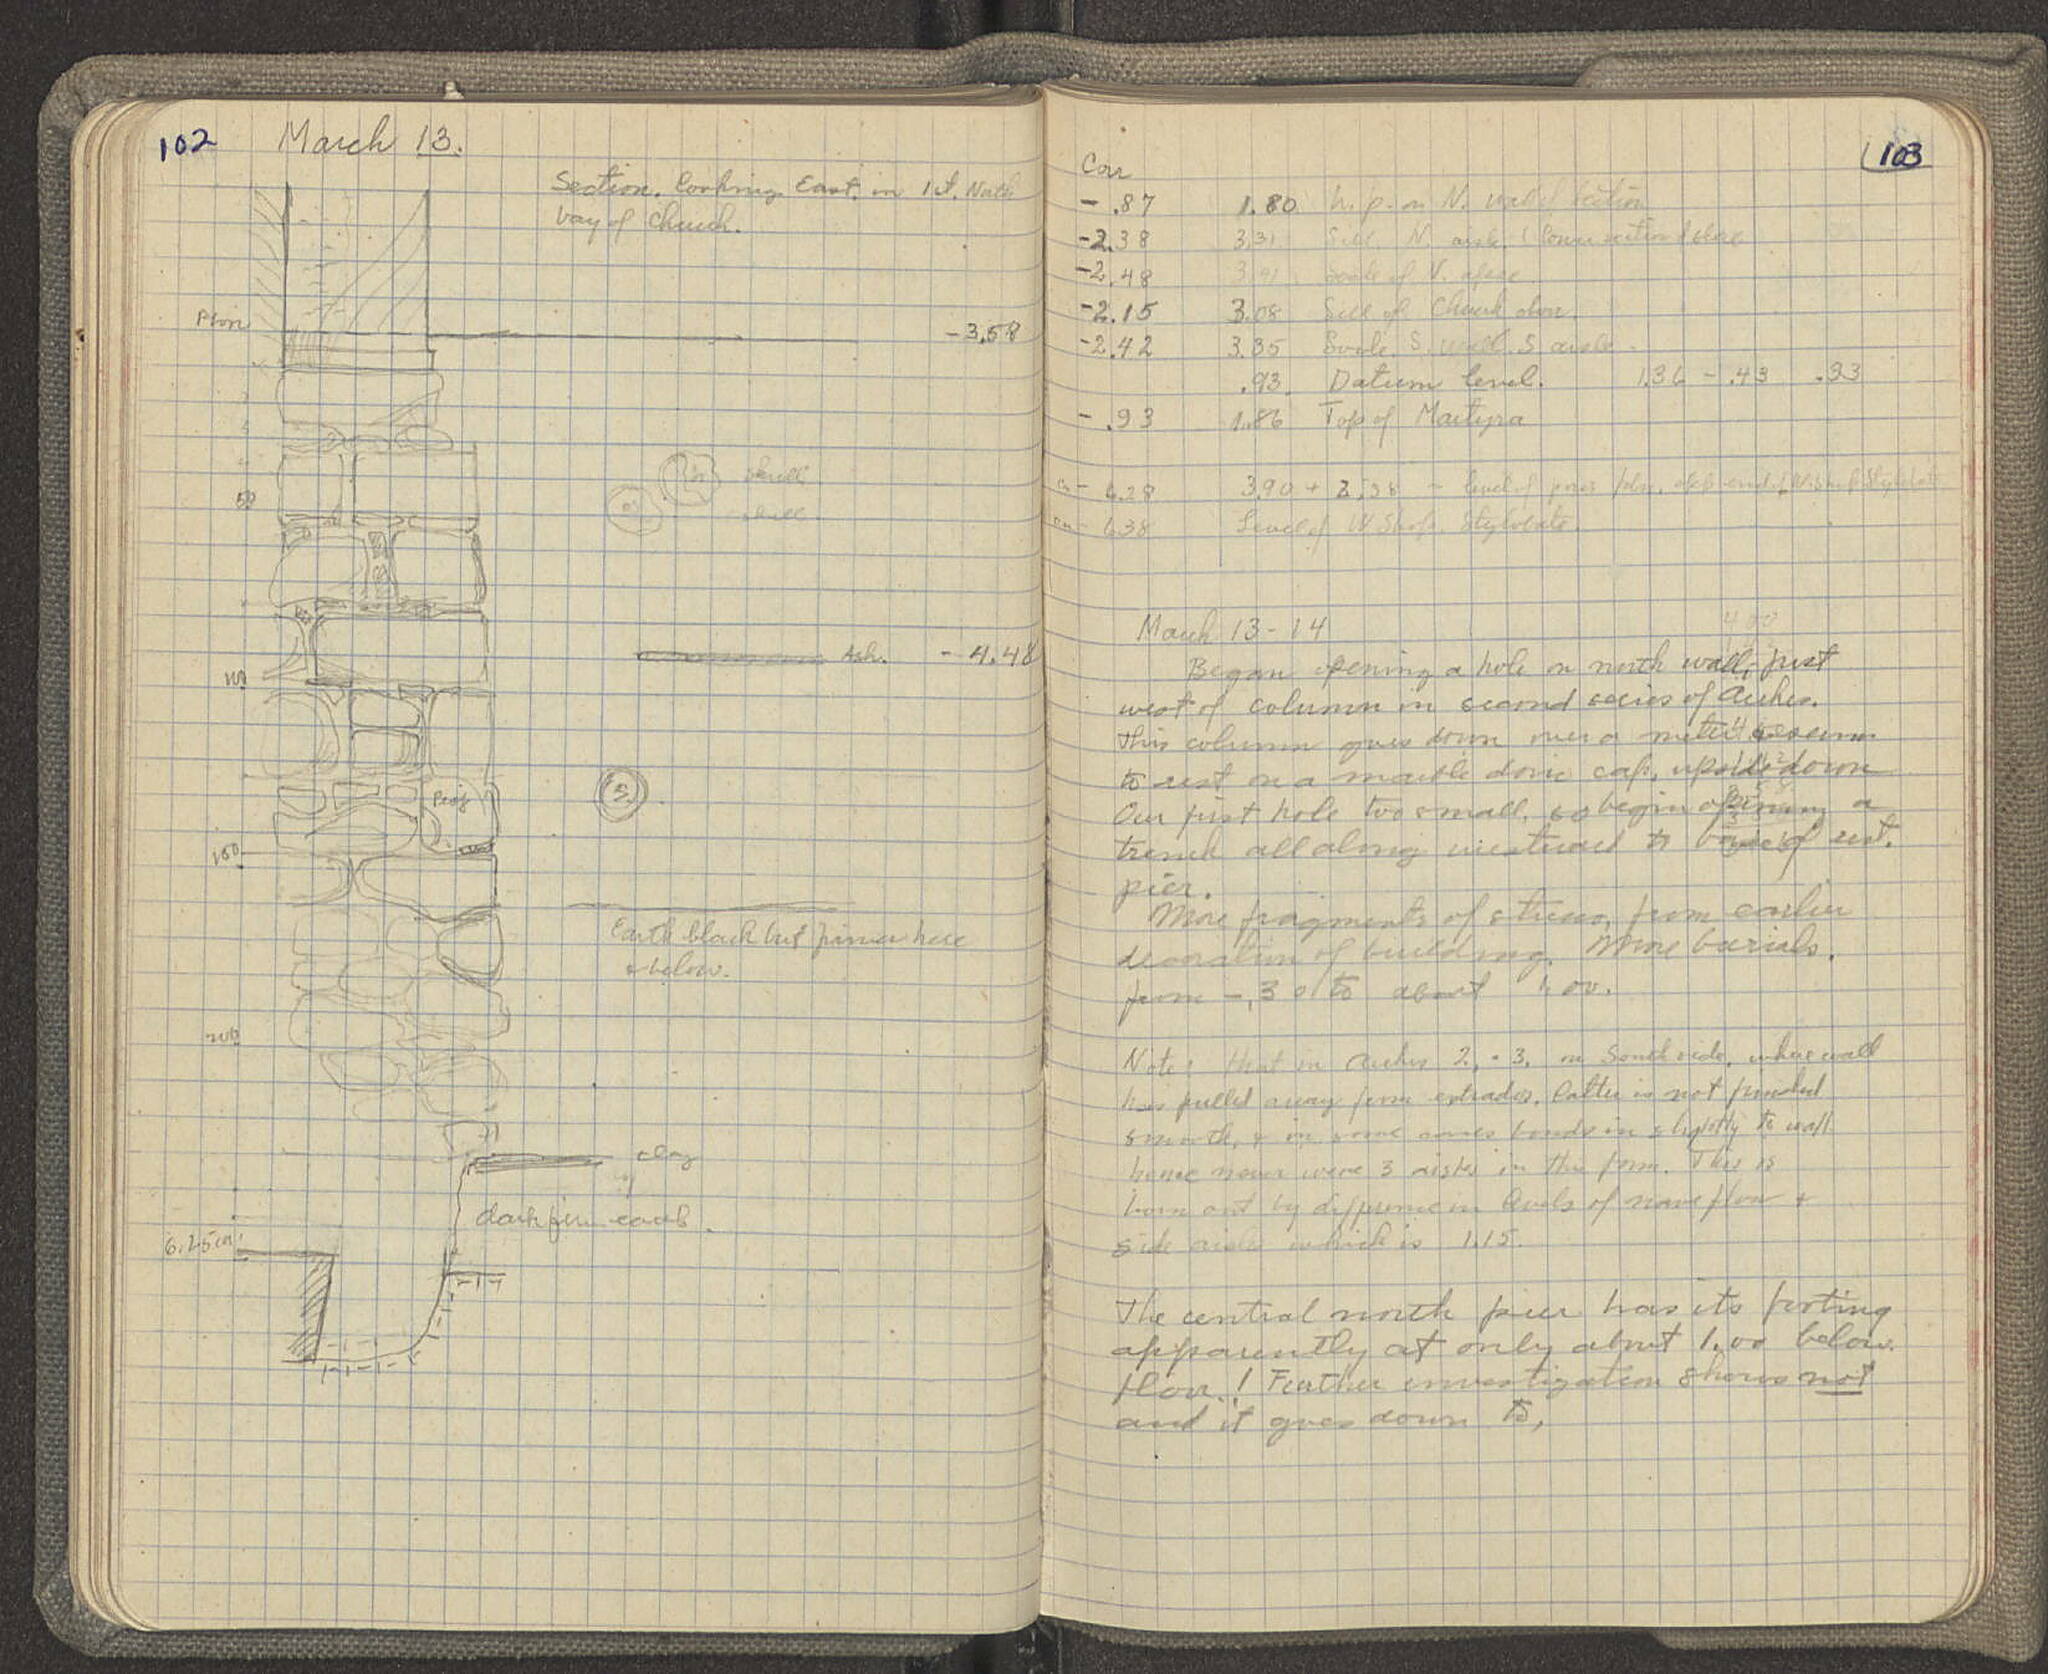 102 March 13.
Section. Looking East. in 1st. North
bay of Church.
Floor
-3.58
skull
skull
50
Ash. - 4.48
100
Poros
150
Earth black but firmer here
& below.
200
clay
dark fine earth.
6.25
103
Corr
- .87 1.80 h. p. on N. wall of section
-2.38 3.31 Sill N. aisle
-2.48 3.41 socle of N. apse
-2.15 3.08 Sill of Church door.
-2.42 3.35 Socle. S. wall. S aisle.
.93 Datum level. 1.36 - .43 .33
- .93 1.86 Top of Martyra
- 6.28 3.90 + 2.38 - level of poros
- 6.38 Level of W Shop. Stylobate.
March 13-14
400
Began opening a hole on north wall, just
west of column in second series of Arches.
This column goes down over a meter & seems
to rest on a marble doric cap, upside down
Our first hole too small, so begin opening a
trench all along westward to base of rest.
pier.
More fragments of stucco, from earlier
decoration of building. More burials.
from -.30 to about 1.00.
Note: that in Arches 2. - 3. on South side, where wall
has pulled away from extrados, latter is not finished
smooth, & in some cases bonds in slightly to wall
hence never were 3 aisles in this form. This is
born out by difference in levels of nave floor &
side aisle which is 1.15.
The central north pier has its footing
apparently at only about 1.00 below
floor.! Further investigation shows not
and it goes down to,